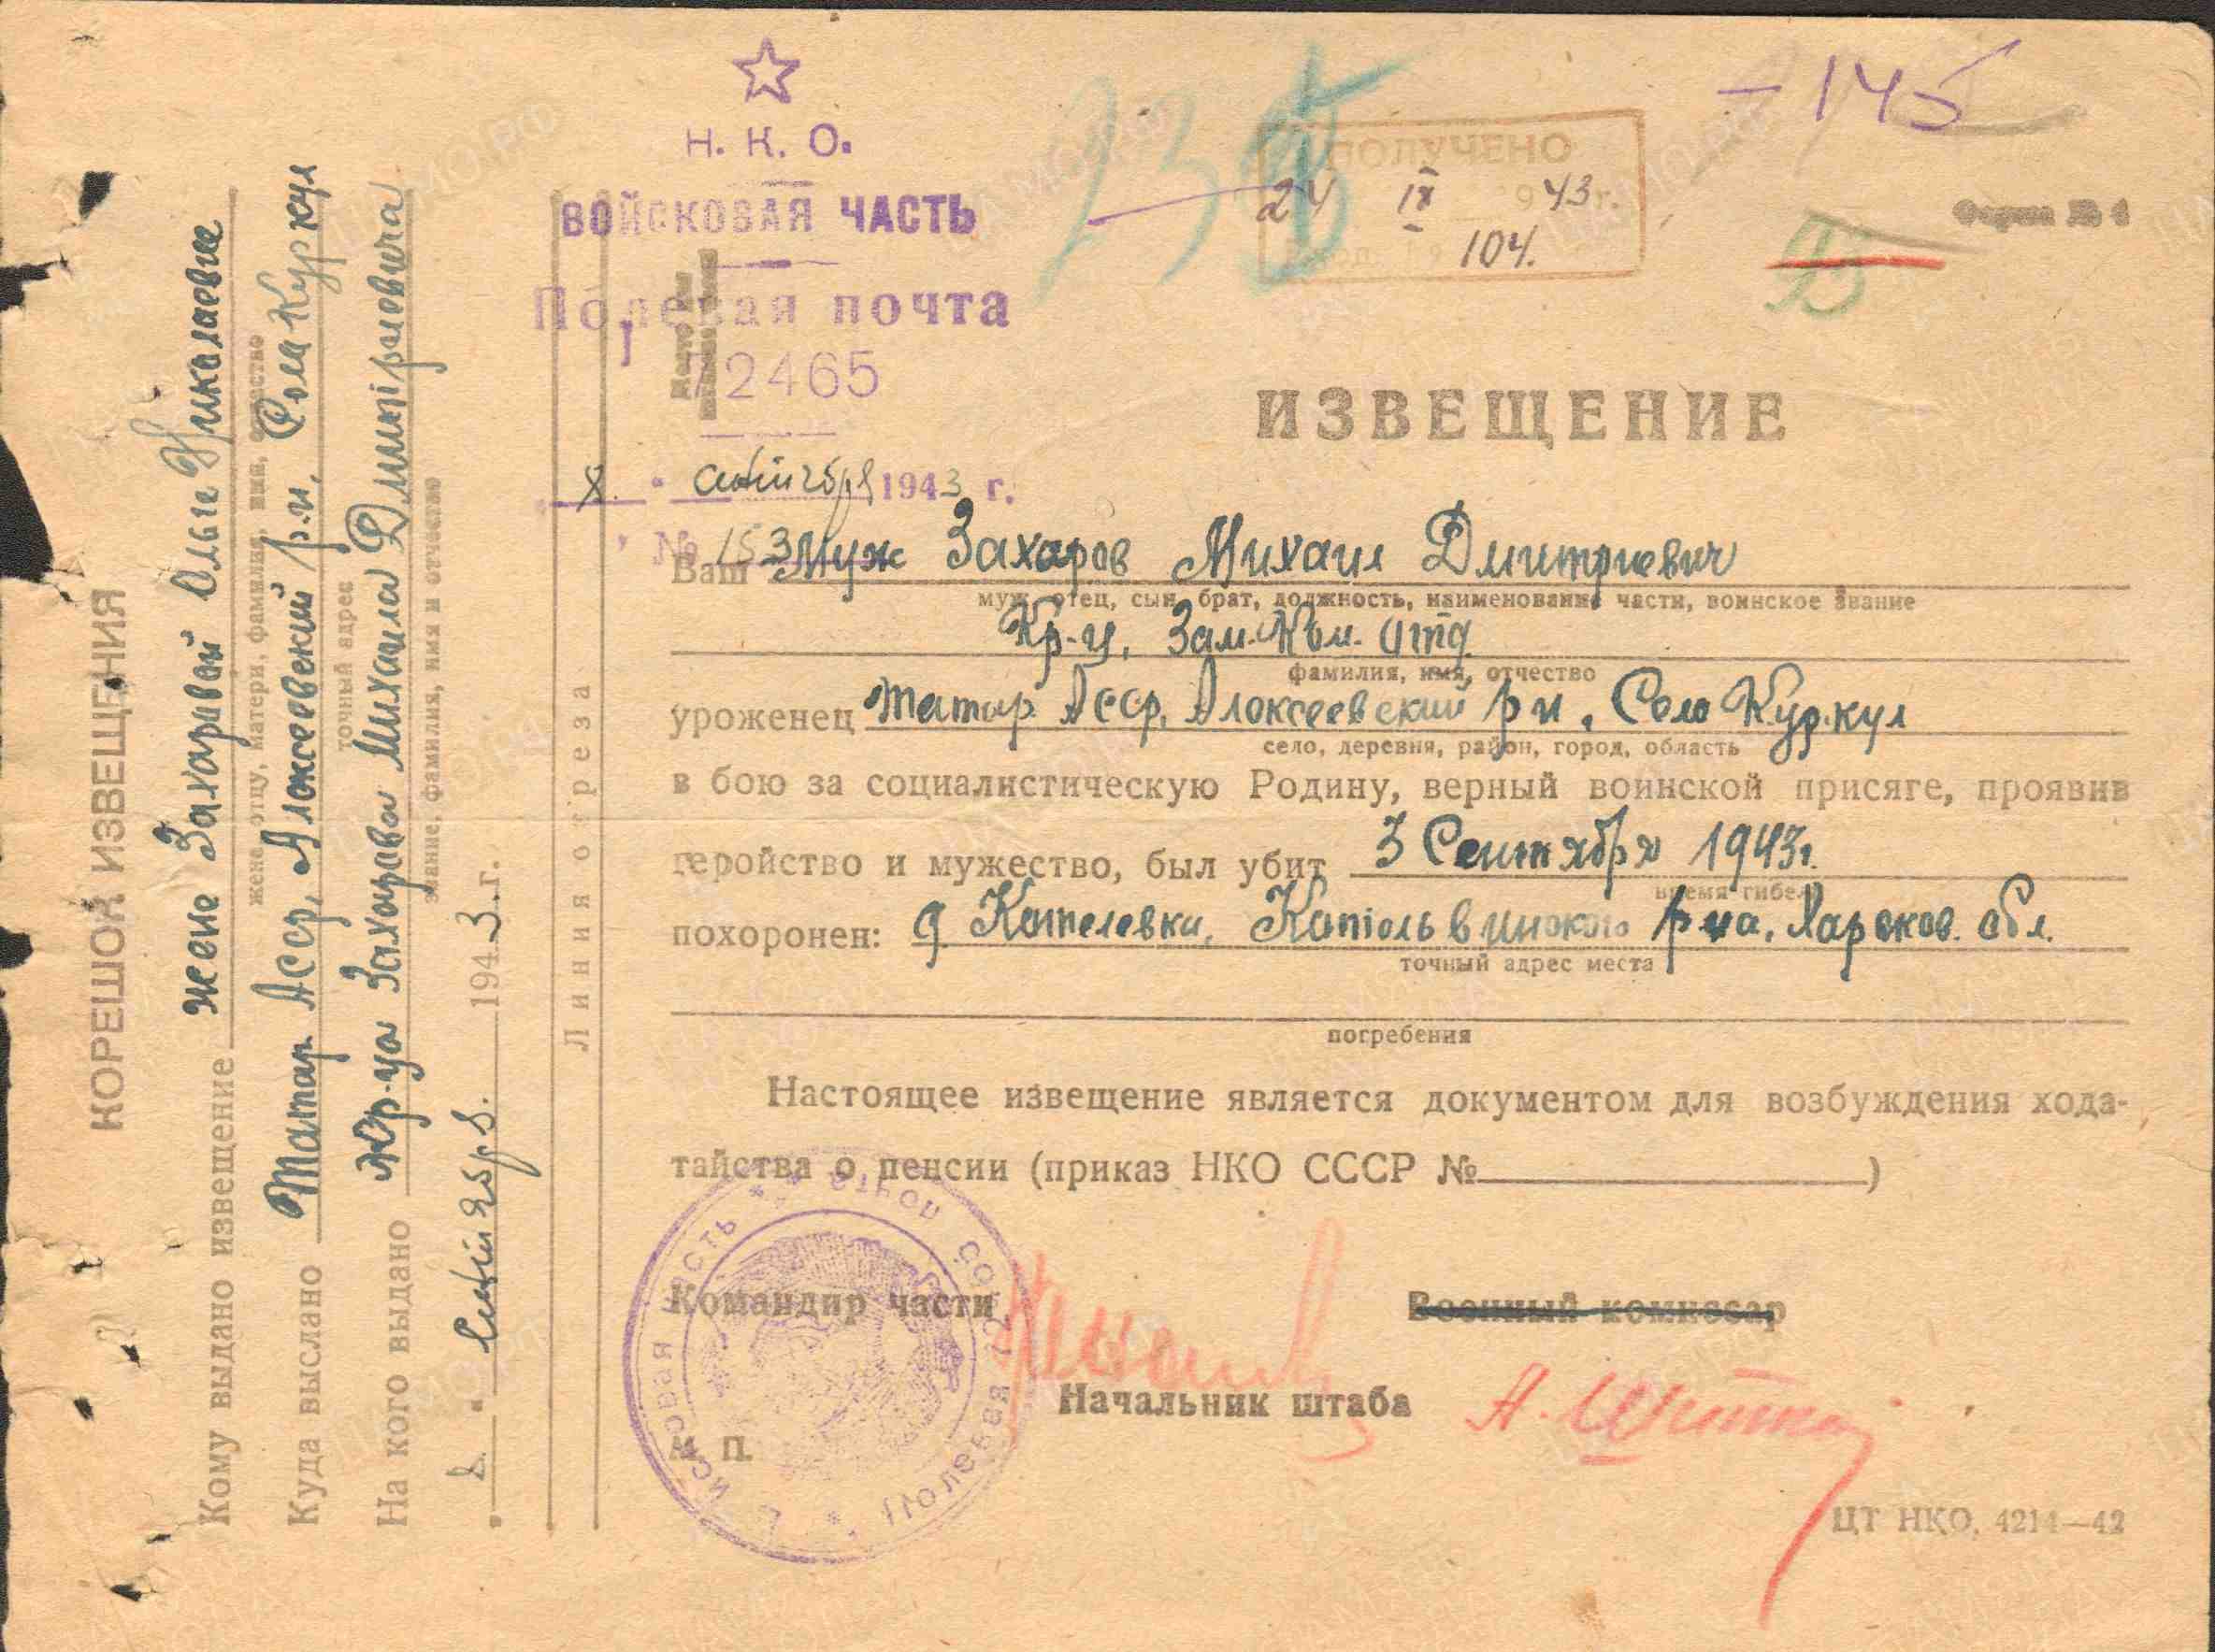 КОРЕШОК ИЗВЕЩЕНИЯ
Кому выдано извещение жене Захаровой Ольге Николаевне
жене, отцу, матери, фамилия, имя, отчество
Куда выслано Татар Асср, Алексеевский р-н, Село Куркул
точный адрес
На кого выдано Кр-ца Захарова Михаила Дмитриевича
звание, фамилия, имя и отчество
8. " Сентября. 1943.г.
Линия отреза
Н. К. О.
ВОЙСКОВАЯ ЧАСТЬ
Полевая почта
2465
8. " сентября 1943 г.
№ 153
– 145
235
ПОЛУЧЕНО
24 IX 943 г.
Вход. № 104.
Форма № 4
ИЗВЕЩЕНИЕ
Ваш Муж Захаров Михаил Дмитриевич
муж, отец, сын, брат, должность, наименование части, воинское звание
Кр-ц, Зам. Ком. Отд.
фамилия, имя, отчество
уроженец Татар. Асср, Алексеевский р-н, Село Куркул
село, деревня, район, город, область
в бою за социалистическую Родину, верный воинской присяге, проявив
геройство и мужество, был убит 3 Сентября 1943г.
время гибели
похоронен: д Котелевка, р-на, Харьков. обл.
точный адрес места
погребения
Настоящее извещение является документом для возбуждения хода-
тайства о пенсии (приказ НКО СССР № )
Командир части
Военный комиссар
Начальник штаба
М. П.
Войсковая часть * Полевая почта
ЦТ НКО, 4214—42